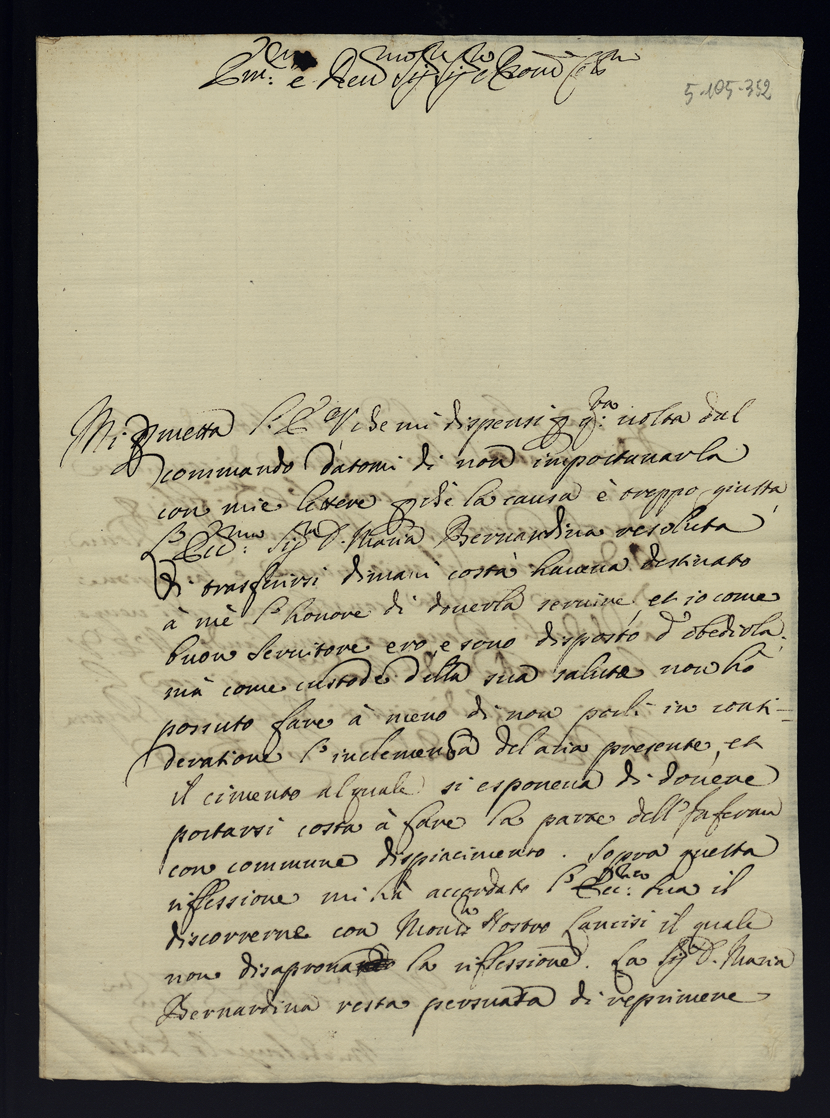 Em:mo e Reu:mo Sig:r Sig:r e Pron Col:mo
5-105-352
Mi pmetta l'E V che mi dispensi p q:ta uolta dal
commando datomi di non importunarla
con mie lettere pche la causa è troppo giusta
L'Ecc:ma Sig:ra D. Maria Bernardina resoluta
di trasferirsi dimani costà haueua destinato
à mè l'honore di douerla seruire, et io come
buon seruitore ero, e sono disposto d'obedirla,
mà come custode della sua salute non hò
possuto fare à meno di non porli in consi-
deratione l'inclemenza del aria presente, et
il cimento al quale si esponeua di douere
portarsi costa à fare la parte dell'Inferma
con commune dispiacimento. Sopra questa
riflessione mi hà accordato l'Ecc:za sua il
discorrerne con Mons:r Nostro Lancisi il quale
non disaproua la riflessione. La Sig:ra D. Maria
Bernardina resta persuata di reprimere